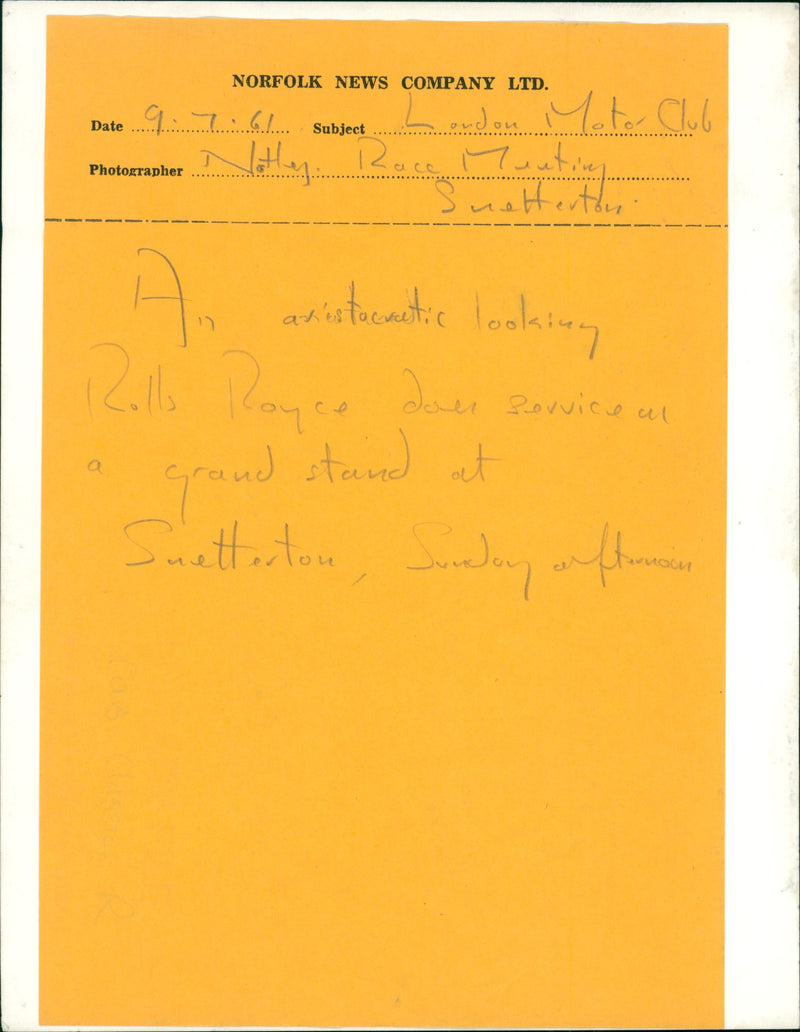 NORFOLK NEWS COMPANY LTD.
Date 9.7.61 Subject London Motor Club
Photographer Notley. Race Meeting
Snetterton.
An aristocratic looking
Rolls Royce does service as
a grand stand at
Snetterton, Sunday afternoon